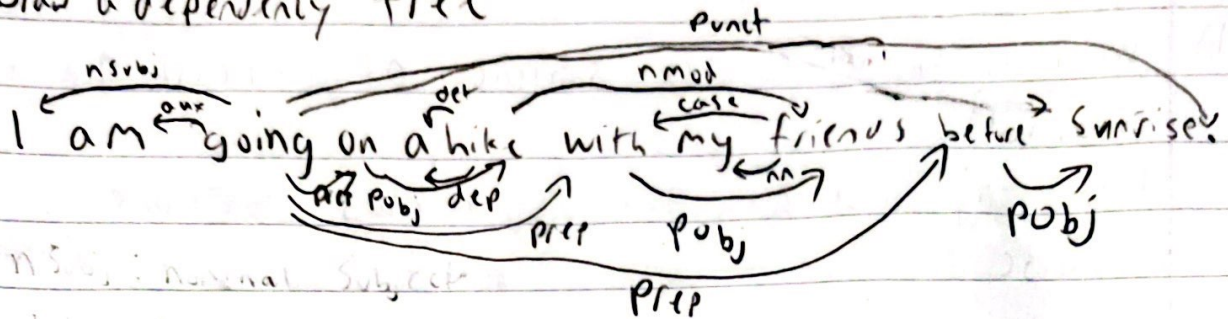 Draw a dependency tree
punct
nsubj nmod
aux det case
I am going on a hike with my friends before sunrise.
pobj dep nn
prep pobj pobj
nsubj: nominal subject
prep